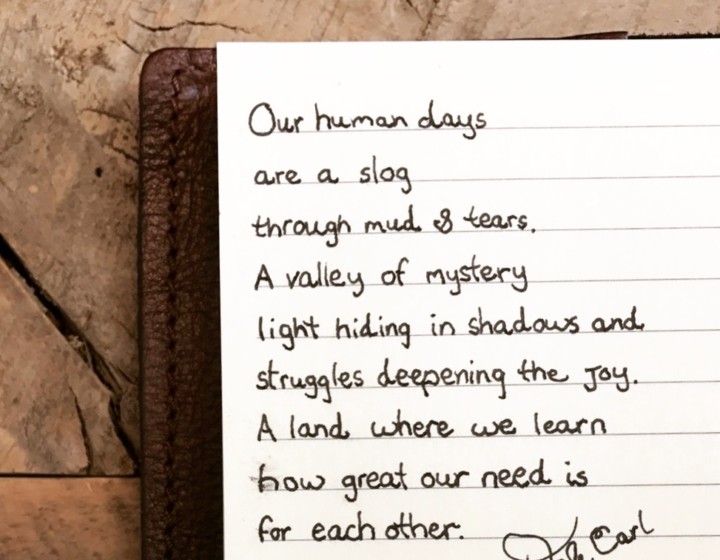 Our human days
are a slog
through mud & tears.
A valley of mystery
light hiding in shadows and
struggles deepening the joy.
A land where we learn
how great our need is
for each other.
Earl